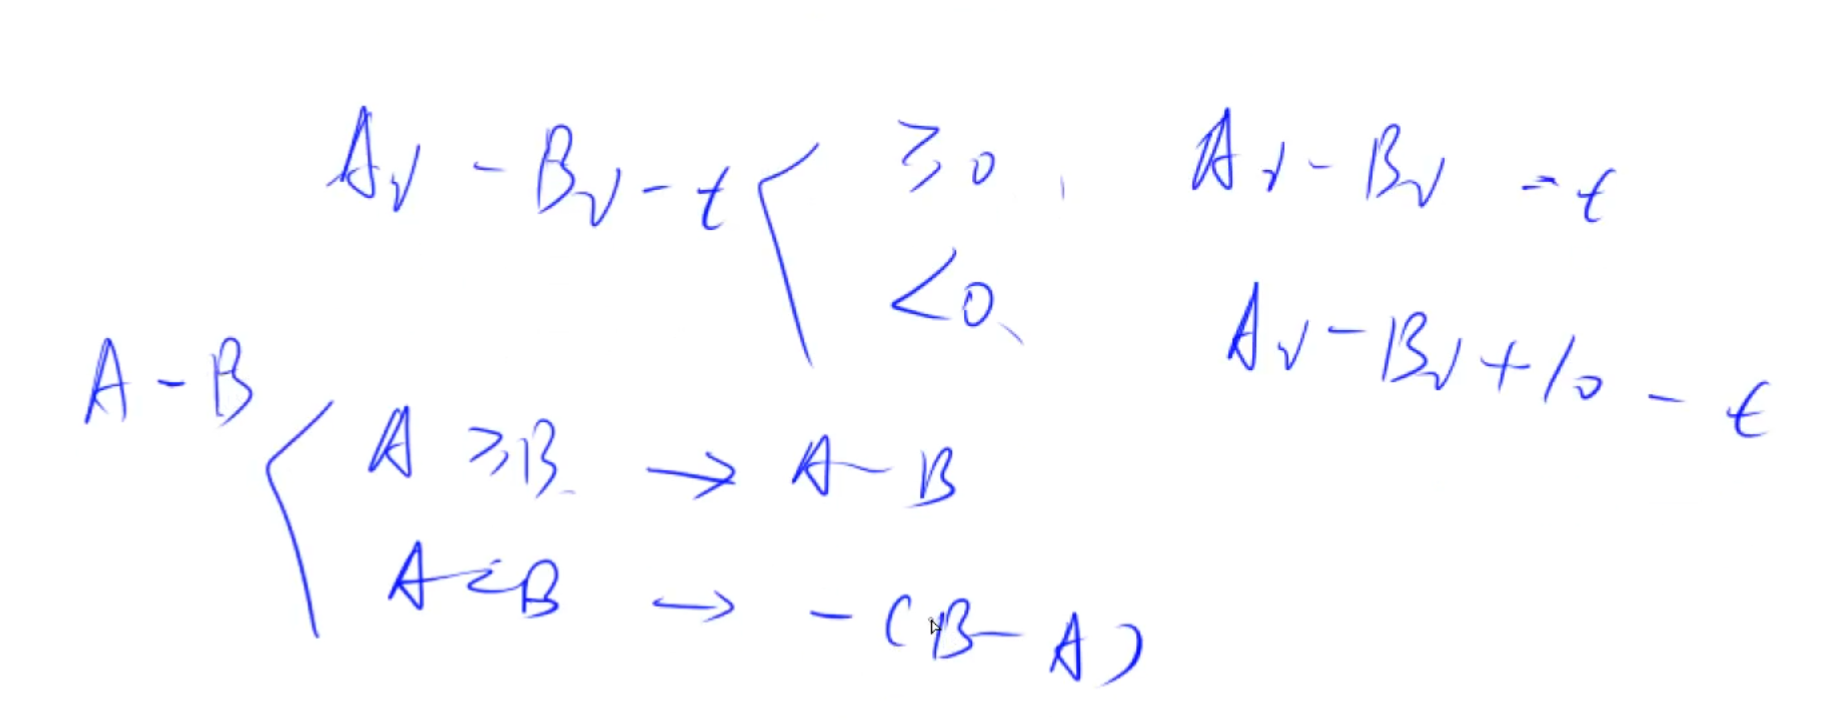 Av - Bv - t < ≥ 0, Av - Bv - t
< 0、 Av - Bv + 10 - t
A - B
A ≥ B → A - B
A < B → - (B - A)